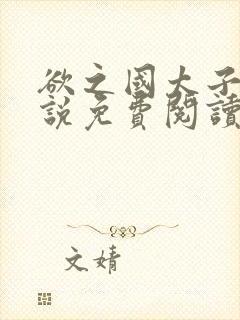 欲之國大子
說免費閱讀
文婧